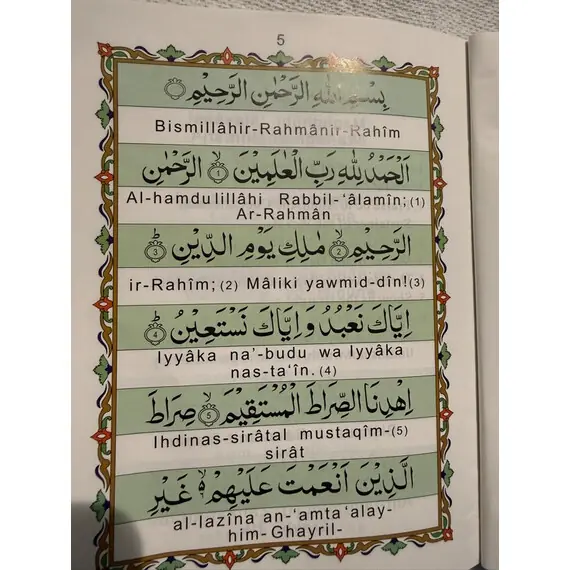 5
بِسْمِ اللّٰهِ الرَّحْمٰنِ الرَّحِيْمِ
Bismillâhir-Rahmânir-Rahîm
اَلْحَمْدُ لِلّٰهِ رَبِّ الْعٰلَمِيْنَ ۙ ١ الرَّحْمٰنِ
Al-hamdu lillâhi Rabbil-‘âlamîn; (1)
Ar-Rahmân
الرَّحِيْمِ ۙ ٢ مٰلِكِ يَوْمِ الدِّيْنِ ؕ ٣
ir-Rahîm; (2) Mâliki yawmid-dîn! (3)
اِيَّاكَ نَعْبُدُ وَ اِيَّاكَ نَسْتَعِيْنُ ؕ ٤
Iyyâka na’-budu wa Iyyâka
nas-ta‘în. (4)
اِهْدِنَا الصِّرَاطَ الْمُسْتَقِيْمَ ۙ ٥ صِرَاطَ
Ihdinas-sirâtal mustaqîm- (5)
sirât
الَّذِيْنَ اَنْعَمْتَ عَلَيْهِمْ ۙ ٦ غَيْرِ
al-lazîna an-‘amta ‘alay-
him- Ghayril-